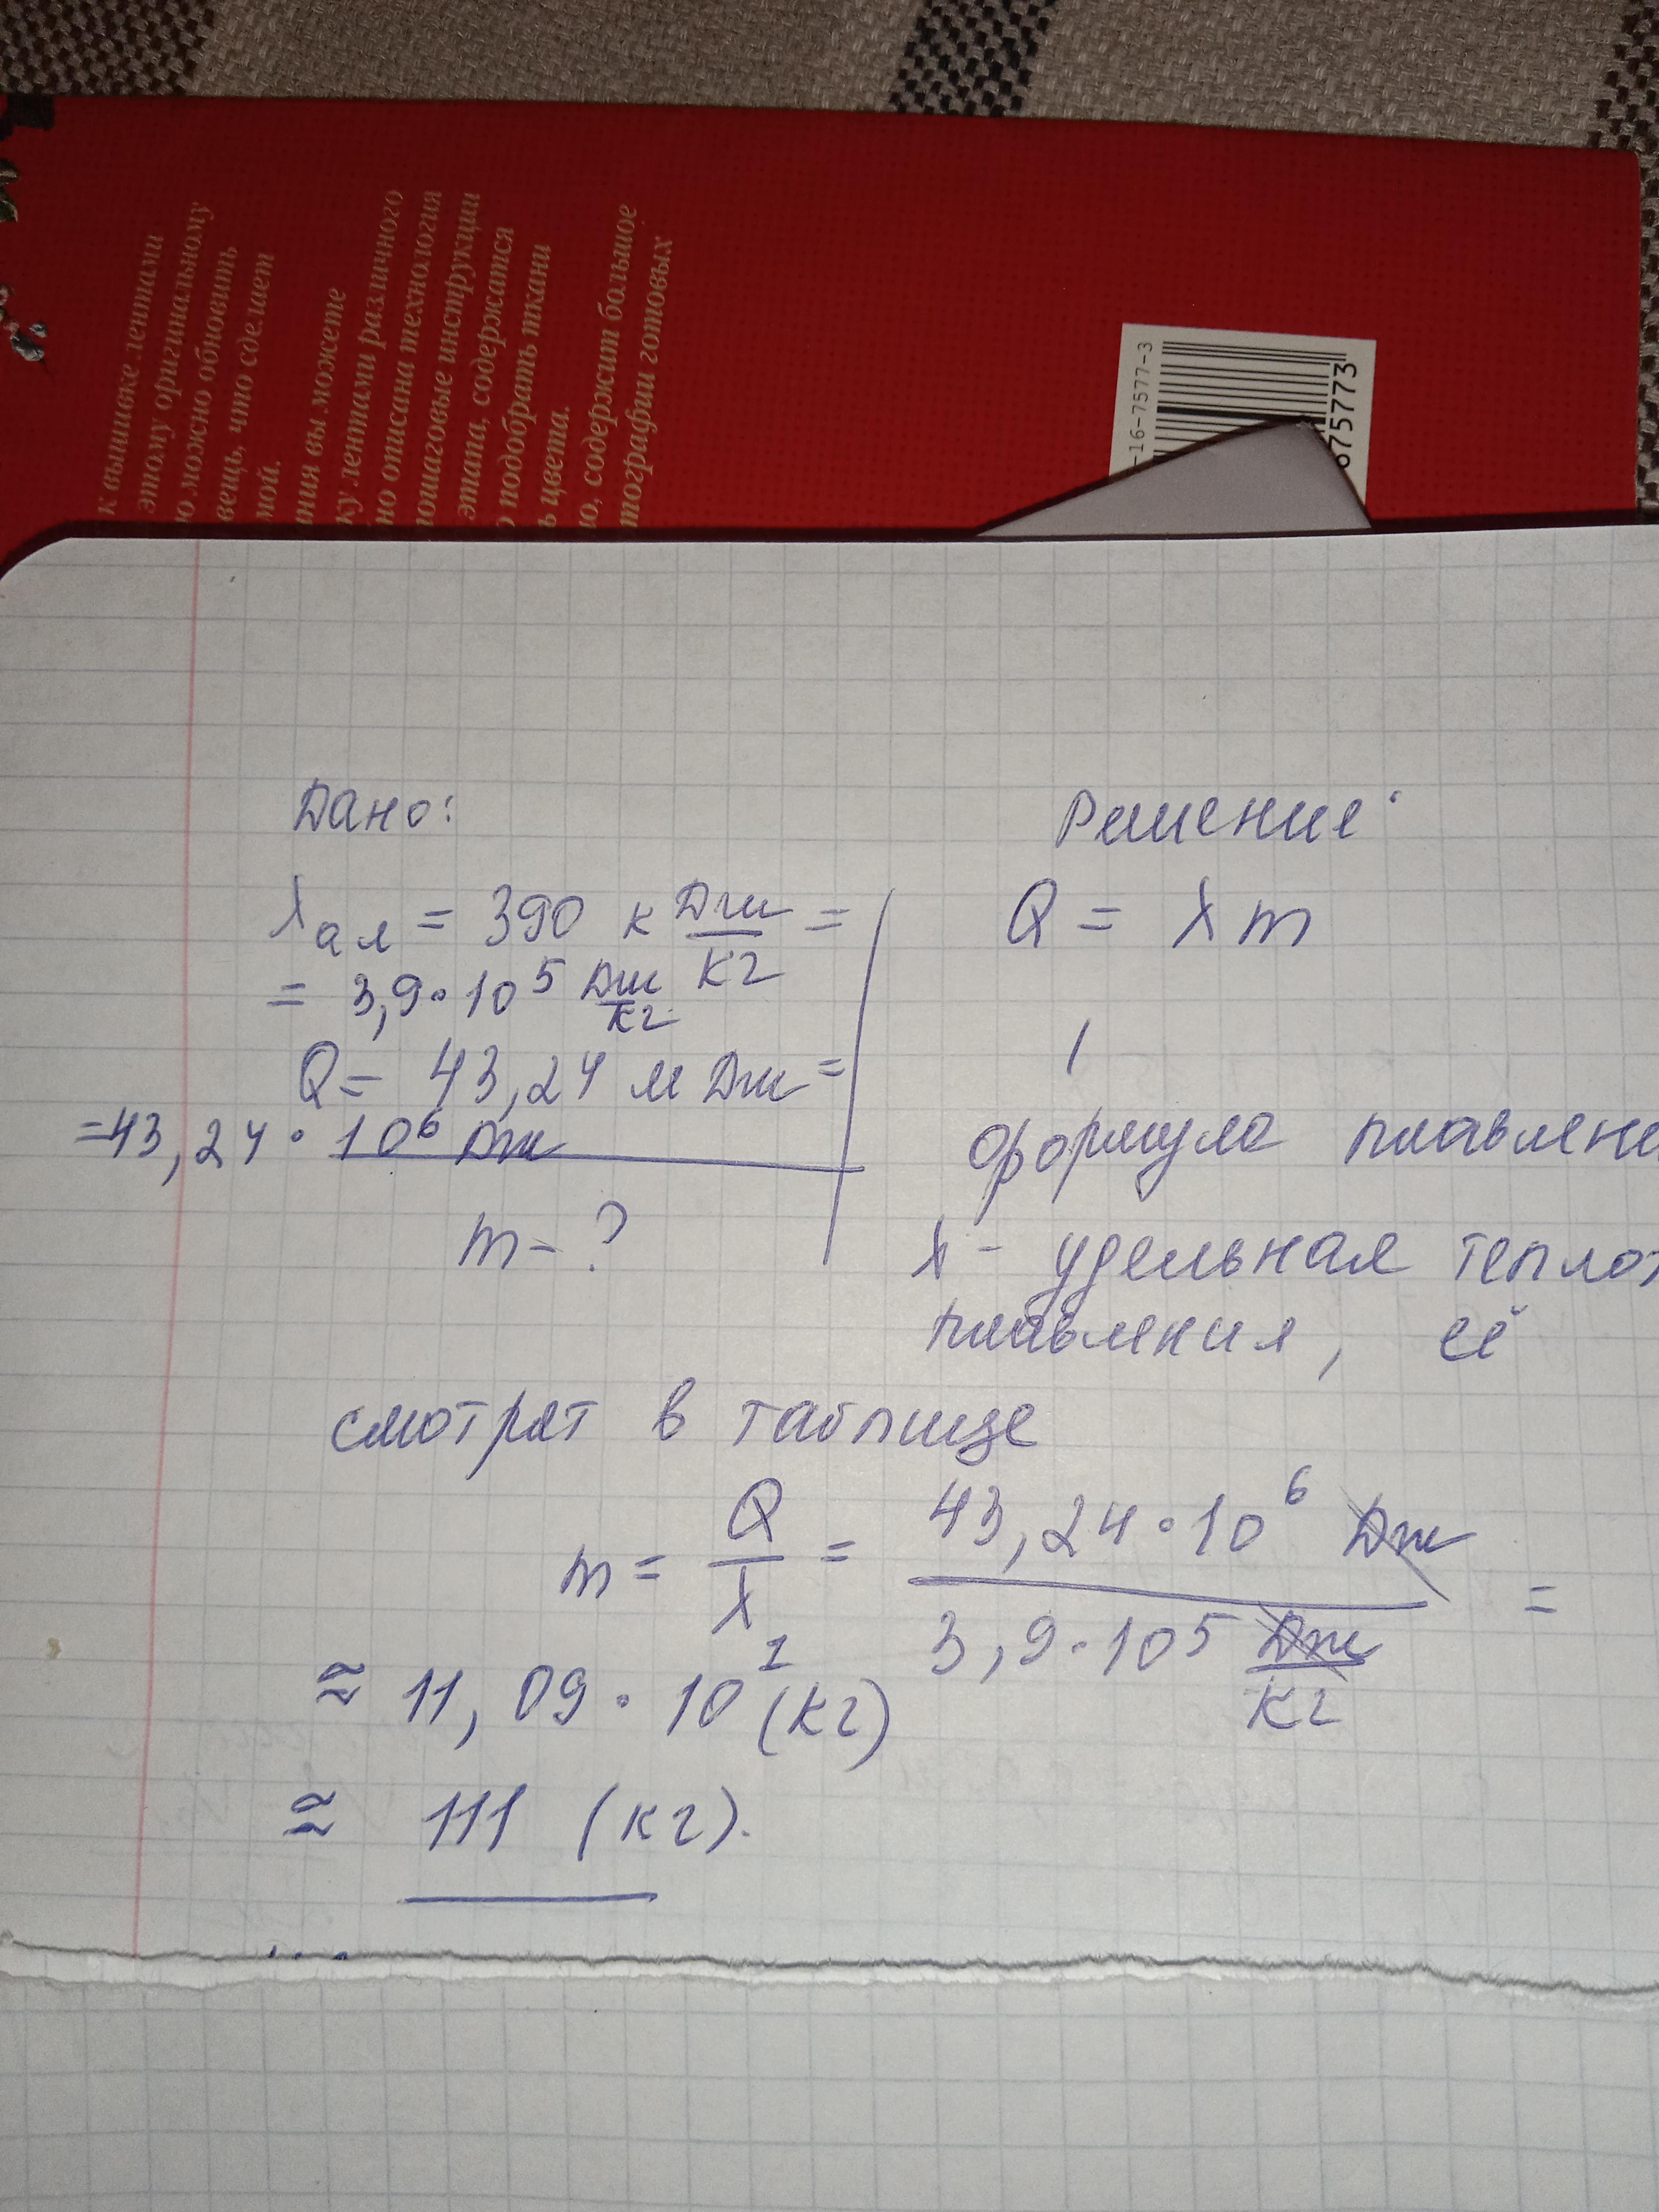 к вышивке лентами
этому оригинальному
ю можно обновить
вещь, что сделает
мой.
ния вы можете
ку лентами различного
но описана технология
пошаговые инструкции
этапа, содержатся
о подобрать ткани
ь цвета.
но, содержит большое
тографии готовых
-16-7577-3
875773
Дано:
λал = 390 к Дж/кг =
= 3,9·10⁵ Дж/кг
Q = 43,24 мДж =
=43,24·10⁶ Дж
m - ?
Решение:
Q = λm
формула плавлени
λ - удельная теплот
плавления, её
смотрят в таблице
m = Q/λ = 43,24·10⁶ Дж / 3,9·10⁵ Дж/кг =
≈ 11,09·10¹ (кг)
≈ 111 (кг).